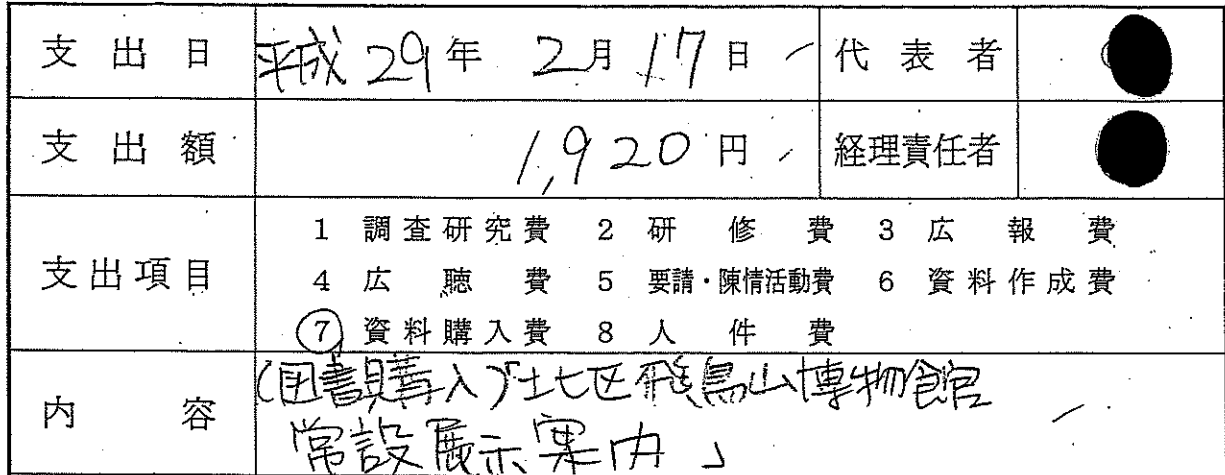 支出日 平成29年 2月17日 代表者
支出額 1,920円 経理責任者
1 調査研究費 2 研修費 3 広報費
支出項目 4 広聴費 5 要請・陳情活動費 6 資料作成費
⑦ 資料購入費 8 人件費
内容 (図書購入)「北区飛鳥山博物館
常設展示案内」